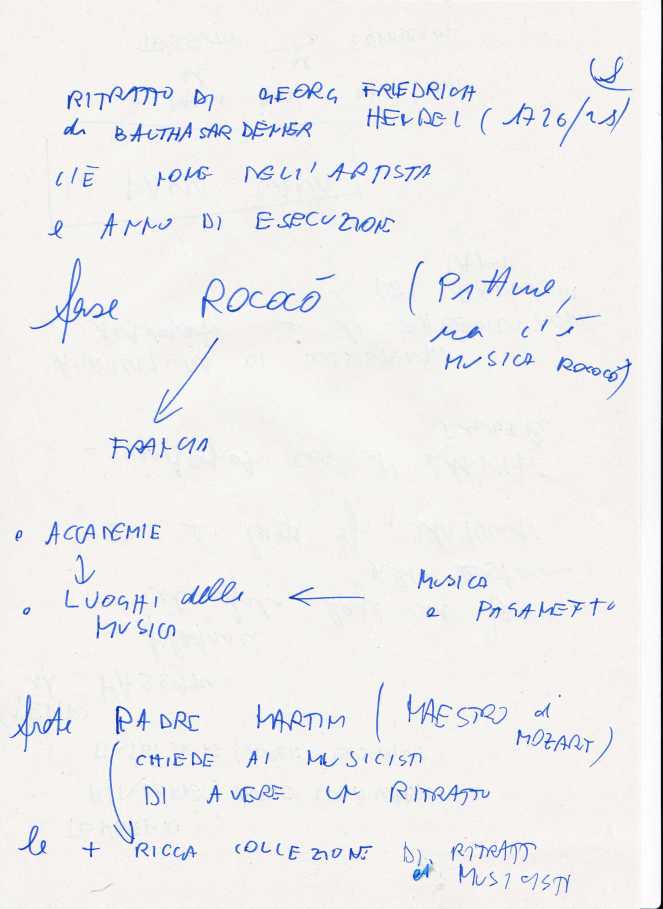 RITRATTO DI GEORG FRIEDRICH
di BALTHASAR DENNER HENDEL (1726/28)
C'È NOME DELL'ARTISTA
e ANNO DI ESECUZIONE
fase ROCOCÒ (Pittura,
ma c'è
MUSICA ROCOCÒ)
FRANCIA
• ACCADEMIE
• LUOGHI della MUSICA
MUSICA
a PAGAMETTO
frate PADRE MARTINI (MAESTRO di
MOZART)
CHIEDE AI MUSICISTI
DI AVERE UN RITRATTO
la + RICCA COLLEZIONE DI RITRATTI
di MUSICISTI